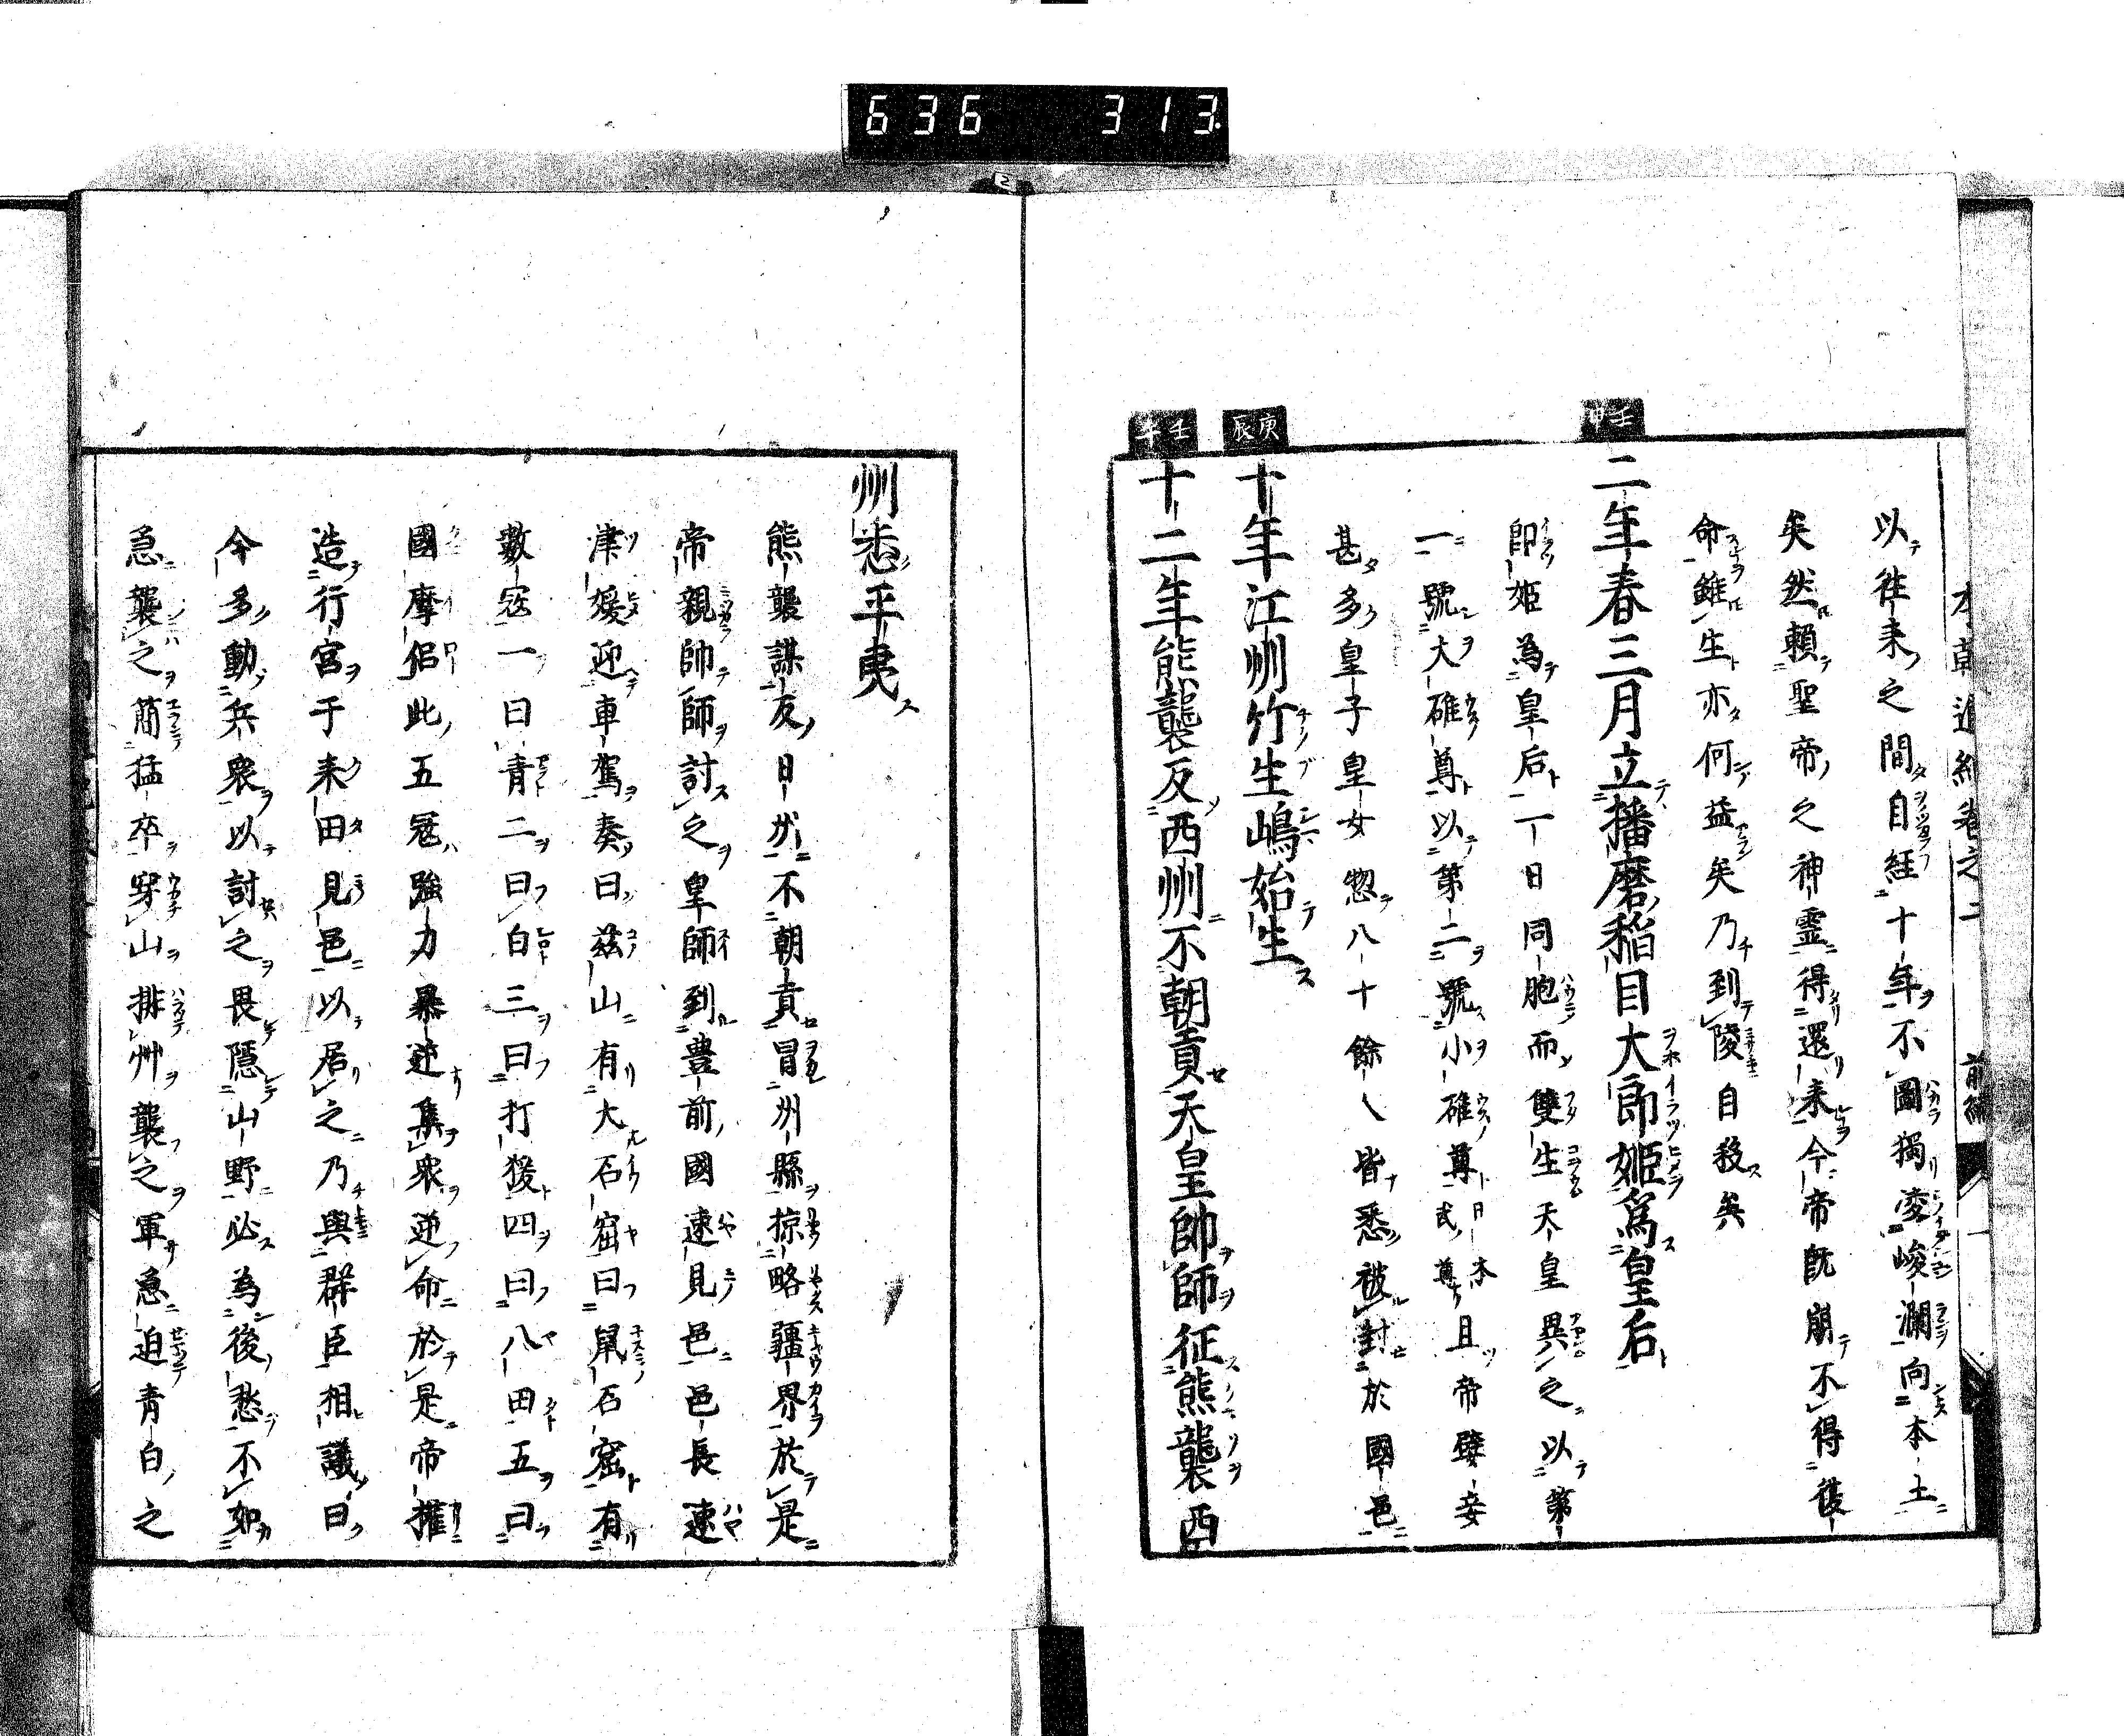 636 313
本朝通紀卷之二 前編 一
以往來之間自經十年不圖獨凌峻瀾向本土
矣然賴聖帝之神霊得還來今帝既崩不得復
命雖生亦何益矣乃到陵自殺矣
壬申
二年春三月立播磨稻目大郎姫爲皇后
即姫為皇后一日同胞而雙生天皇異之以第
一號大碓尊以第二號小碓尊日本武尊且帝嬖妾
甚多皇子皇女惣八十餘人皆悉被封於國邑
庚辰
十年江州竹生嶋始生
壬午
十二年熊襲反西州不朝貢天皇帥師征熊襲西
州悉平夷
熊襲謀反日以不朝貢冒州縣掠略疆界於是
帝親帥師討之皇師到豊前國速見邑邑長速
津媛迎車駕奏曰茲山有大石窟曰鼠石窟有
數寇一曰青二曰白三曰打猨四曰八田五曰
國摩侶此五寇強力暴逆集衆逆命於是帝權
造行宮于來田見邑以居之乃與群臣相議曰
今多動兵衆以討之畏隱山野必為後愁不如
急襲之簡猛卒穿山排艸襲之軍急迫青白之